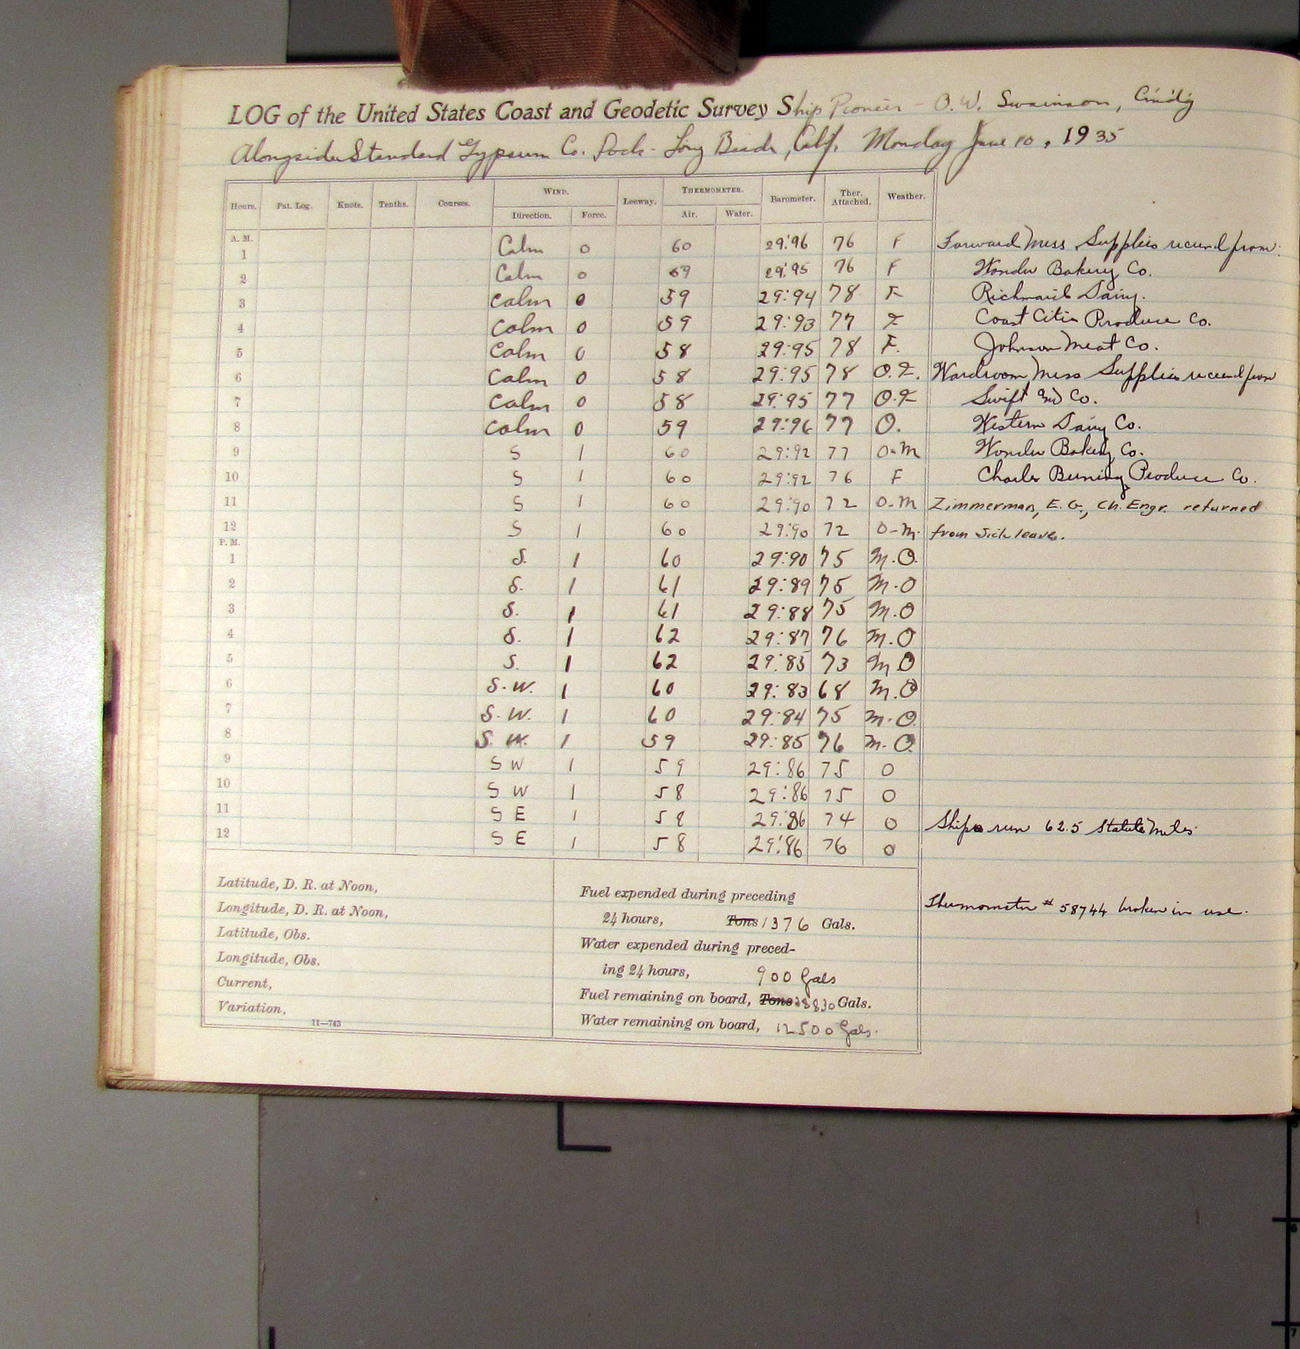 LOG of the United States Coast and Geodetic Survey Ship Pioneer - O.W. Swainson, Cmd'g
Alongside Standard Gypsum Co. Dock - Long Beach, Calif. Monday June 10, 1935
Hours. Pat. Log. Knots. Tenths. Courses. WIND. Direction. Force. Leeway. THERMOMETER. Air. Water. Barometer. Ther. Attached. Weather.
A. M.
1 Calm 0 60 29.96 76 F Forward Mess Supplies received from:
2 Calm 0 59 29.95 76 F Wonder Bakery Co.
3 Calm 0 59 29:94 78 F Dairy.
4 Calm 0 59 29:93 77 F Coast Citi Produce Co.
5 Calm 0 58 29:95 78 F. Johnson Meat Co.
6 Calm 0 58 29:95 78 O.F. Wardroom Mess Supplies received from
7 Calm 0 58 29:95 77 O.F Swift and Co.
8 Calm 0 59 29:96 77 O. Western Dairy Co.
9 S 1 60 29:92 77 O-M Wonder Bakery Co.
10 S 1 60 29:92 76 F Charles Produce Co.
11 S 1 60 29:90 72 O-M Zimmerman, E. G., Ch. Engr. returned
12 S 1 60 29:90 72 O-M. from sick leave.
P. M.
1 S. 1 60 29:90 75 M.O.
2 S. 1 61 29:89 75 M.O
3 S. 1 61 29:88 75 M.O
4 S. 1 62 29:87 76 M.O
5 S. 1 62 29:85 73 M.O
6 S.W. 1 60 29:83 68 M.O
7 S.W. 1 60 29:84 75 M.O
8 S.W. 1 59 29:85 76 M.O
9 SW 1 59 29:86 75 O
10 SW 1 58 29:86 75 O
11 SE 1 58 29:86 74 O Ships run 62.5 Statute Miles
12 SE 1 58 29:86 76 O
Latitude, D. R. at Noon,
Longitude, D. R. at Noon,
Latitude, Obs.
Longitude, Obs.
Current,
Variation,
11—743
Fuel expended during preceding
24 hours, Tons 1376 Gals.
Water expended during preced-
ing 24 hours, 900 Gals
Fuel remaining on board, Tons 28830 Gals.
Water remaining on board, 12500 Gals.
Thermometer # 58744 broken in use.
6
7